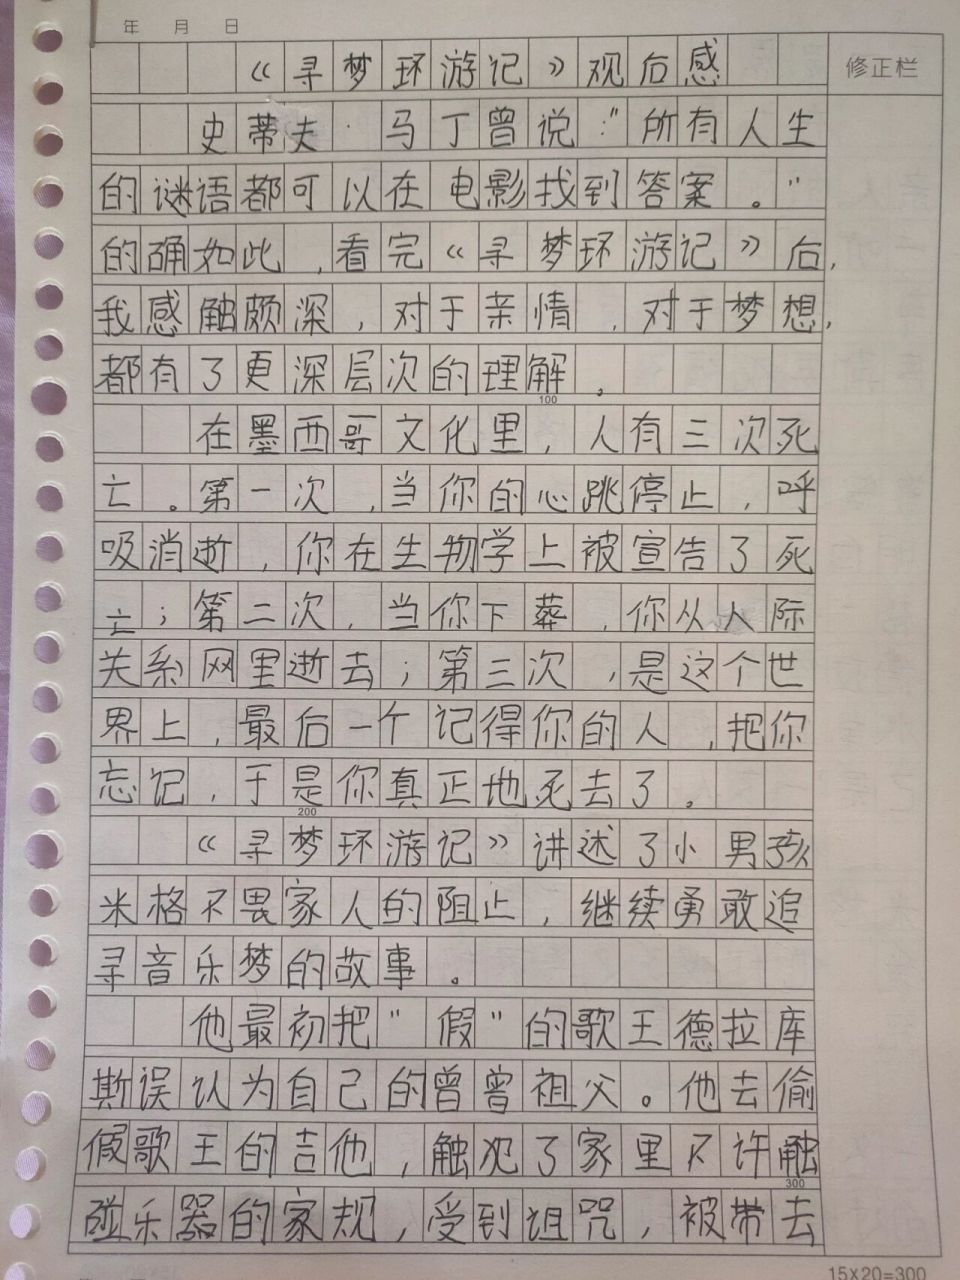 年 月 日
《寻梦环游记》观后感
修正栏
史蒂夫·马丁曾说:"所有人生
的谜语都可以在电影找到答案。"
的确如此,看完《寻梦环游记》后,
我感触颇深,对于亲情,对于梦想,
都有了更深层次的理解。
100
在墨西哥文化里,人有三次死
亡。第一次,当你的心跳停止,呼
吸消逝,你在生物学上被宣告了死
亡;第二次,当你下葬,你从人际
关系网里逝去;第三次,是这个世
界上,最后一个记得你的人,把你
忘记,于是你真正地死去了。
200
《寻梦环游记》讲述了小男孩
米格不畏家人的阻止,继续勇敢追
寻音乐梦的故事。
他最初把"假"的歌王德拉库
斯误认为自己的曾曾祖父。他去偷
假歌王的吉他,触犯了家里不许触
300
碰乐器的家规,受到诅咒,被带去
15×20=300